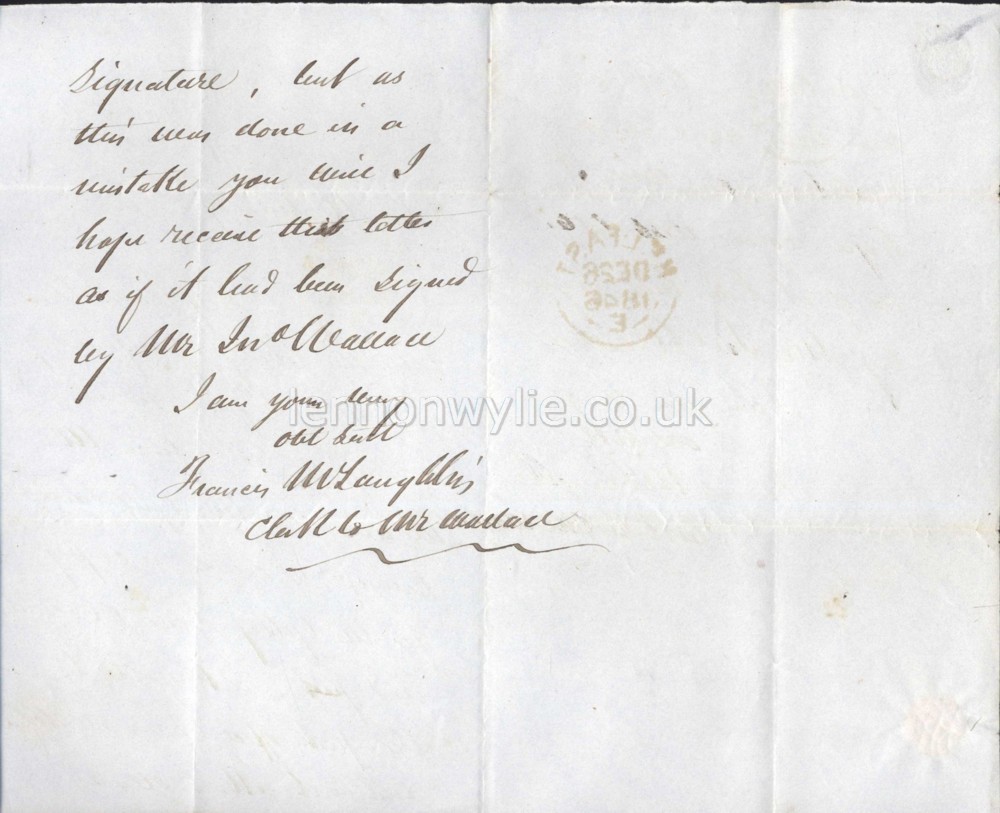 signature, but as
this was done in a
mistake you will I
hope receive this letter
as if it had been signed
by Mr Jno Wallace
I am your very
obt Servt
Francis McLaughlin
Clerk to Mr Wallace
lennonwylie.co.uk
BELFAST
DE 26
1846
E